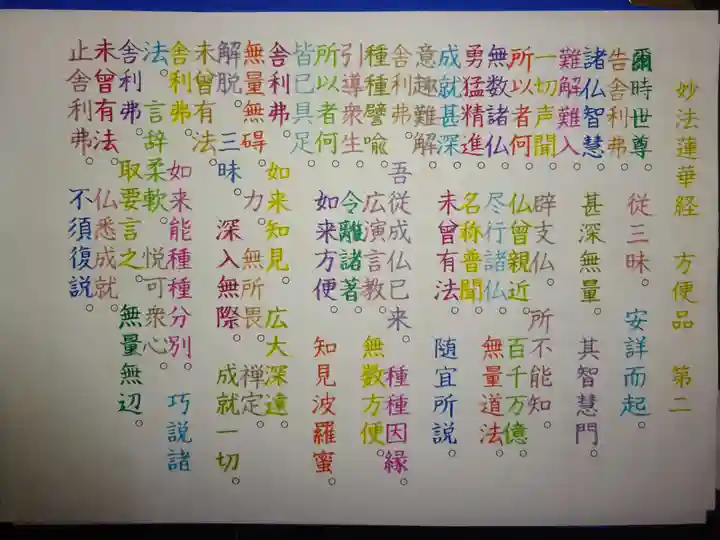 妙法蓮華経 方便品 第二
爾時世尊。 従三昧。 安詳而起。
告舎利弗。
諸仏智慧。 甚深無量。 其智慧門。
難解難入。
一切声聞。 辟支仏。 所不能知。
所以者何。 仏曾親近。 百千万億。
無数諸仏。 尽行諸仏。 無量道法。
勇猛精進。 名称普聞。
成就甚深。 未曾有法。 随宜所説。
意趣難解。
舎利弗。 吾従成仏已来。 種種因縁。
種種譬喩。 広演言教。 無数方便。
引導衆生。 令離諸著。
所以者何。 如来方便。 知見波羅蜜。
皆已具足。
舎利弗。 如来知見。 広大深遠。
無量無碍。 力。 無所畏。 禅定。
解脱。 三昧。 深入無際。 成就一切。
未曾有法。
舎利弗。 如来能種種分別。 巧説諸
法。 言辞柔軟。 悦可衆心。
舎利弗。 取要言之。 無量無辺。
未曾有法。 仏悉成就。
止舎利弗。 不須復説。